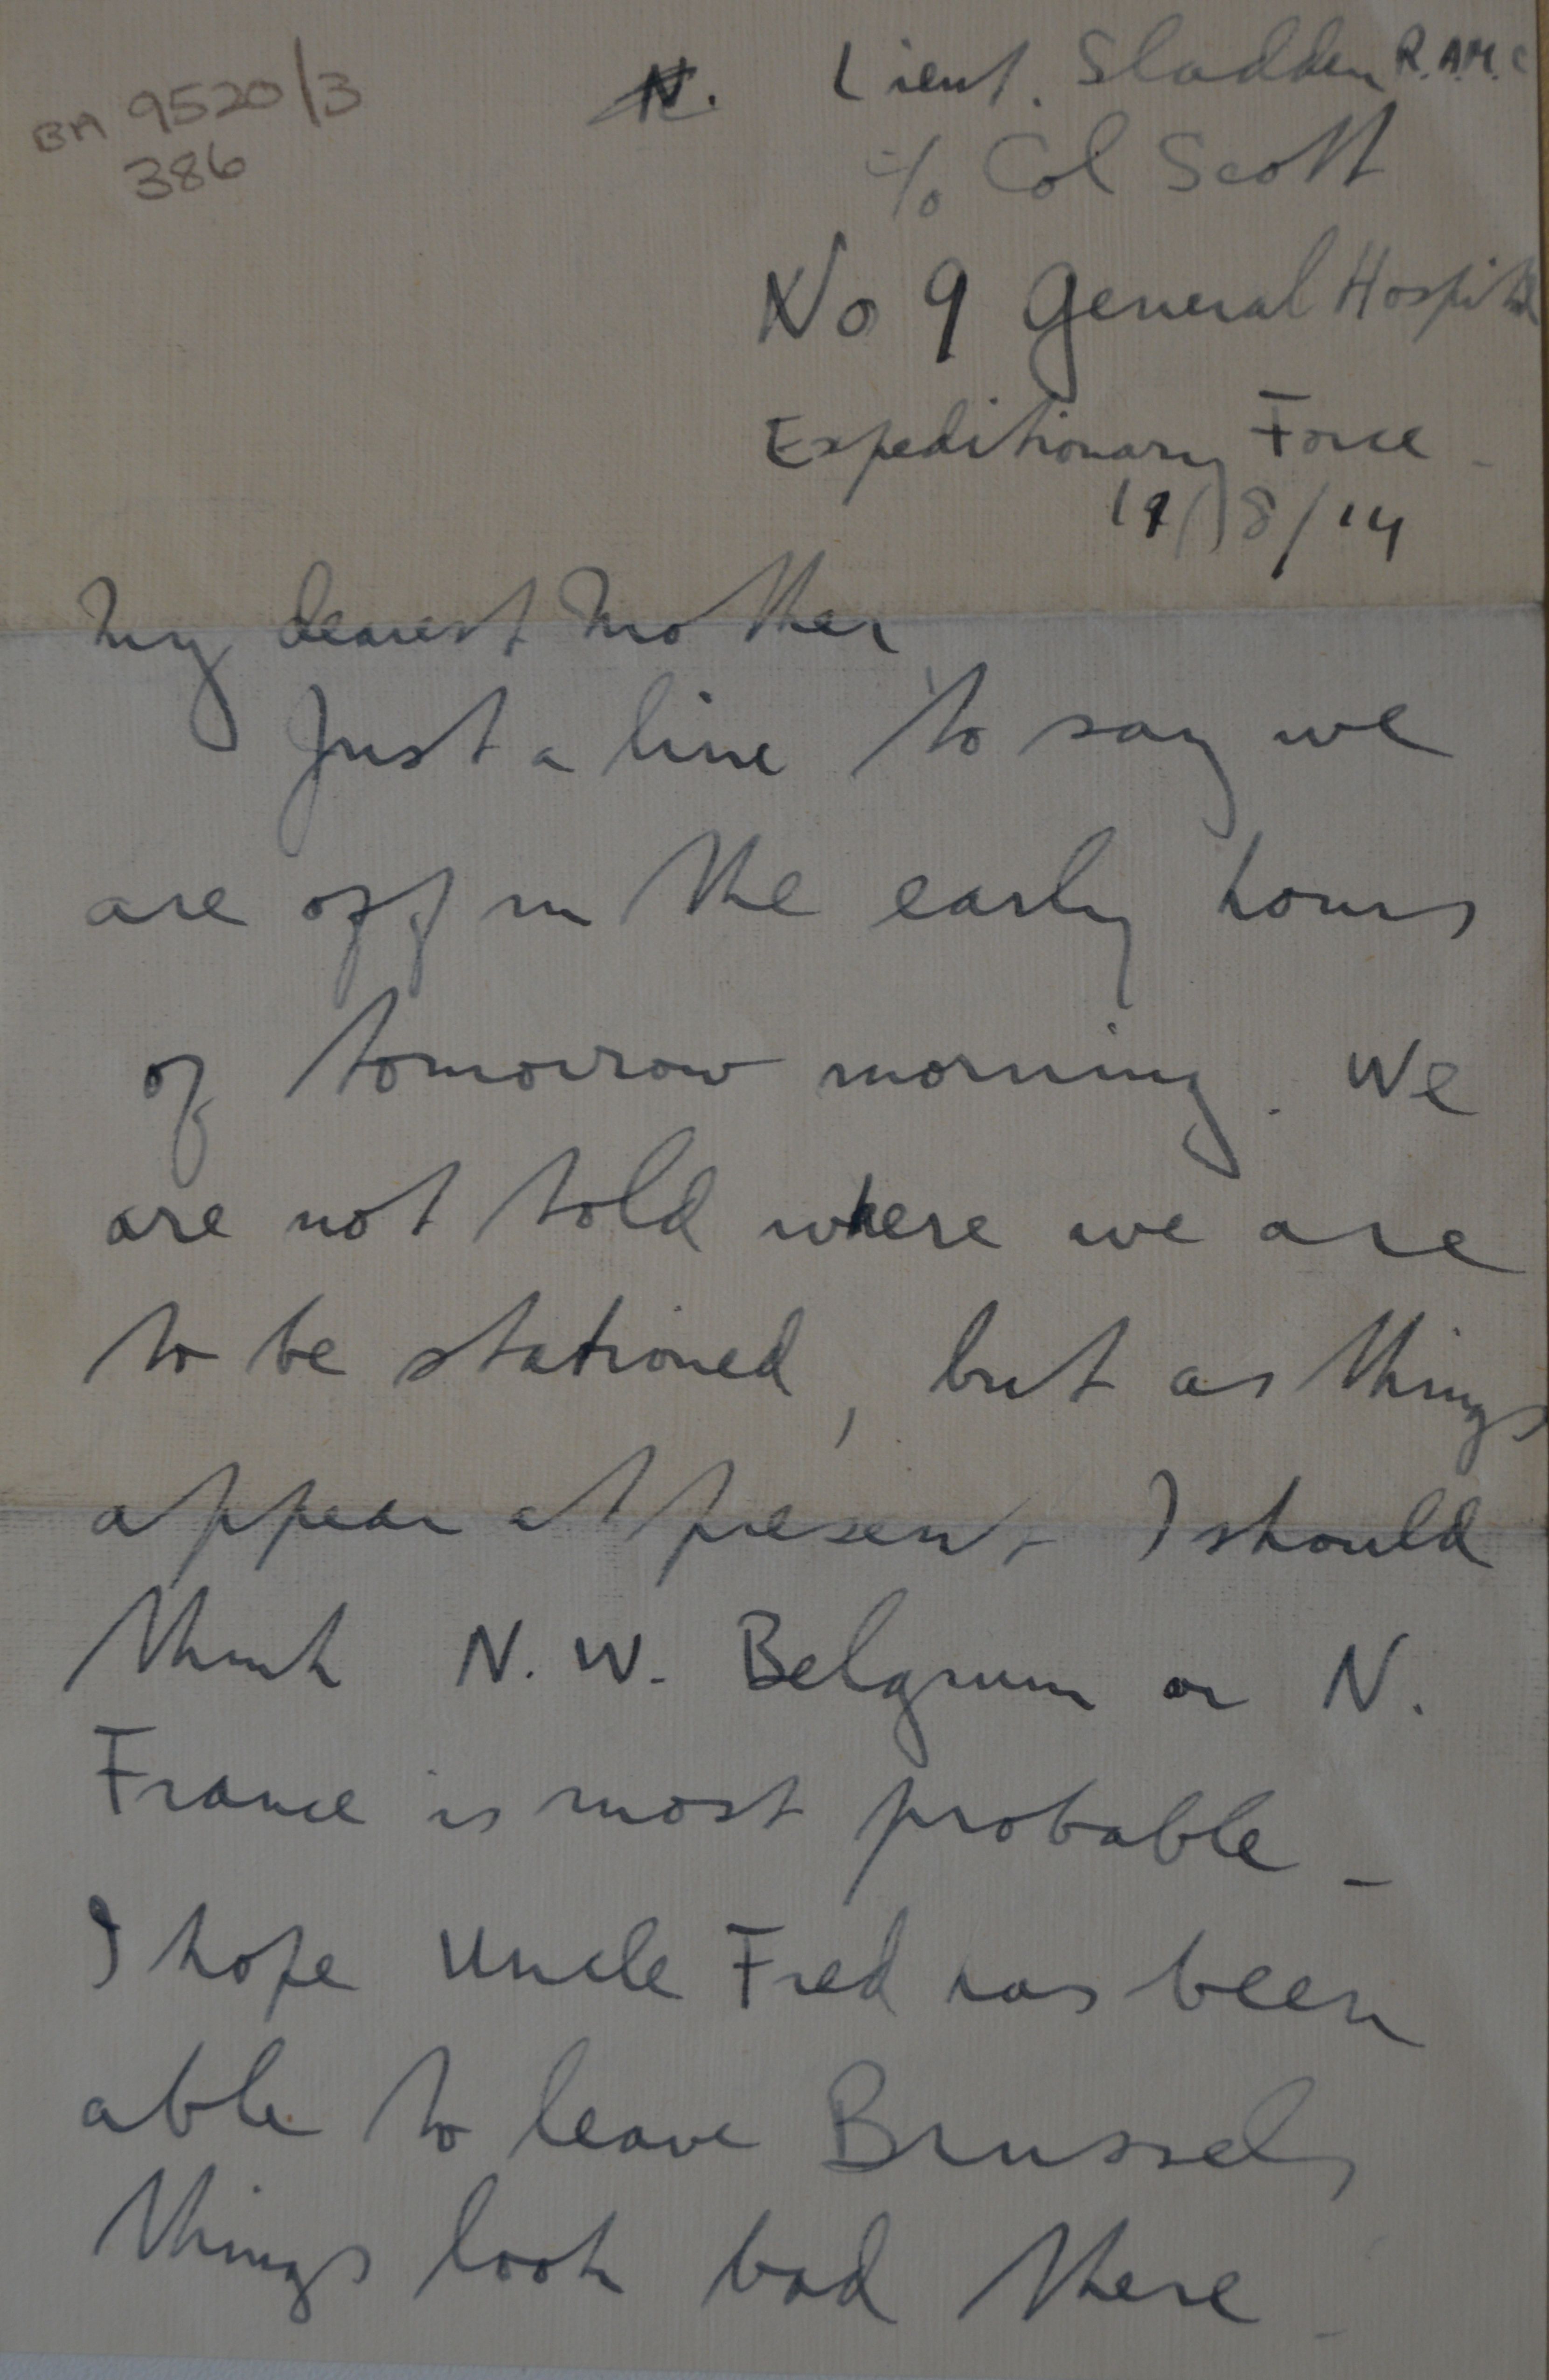 BA 9520/3
386
Lieut. Sladden R.A.M.C
c/o Col Scott
No 9 General Hospital
Expeditionary Force -
19/8/14
My dearest Mother
Just a line to say we
are off in the early hours
of tomorrow morning. We
are not told where we are
to be stationed, but as things
appear at present I should
think N.W. Belgium or N.
France is most probable _
I hope Uncle Fred has been
able to leave Brussels,
things look bad there -